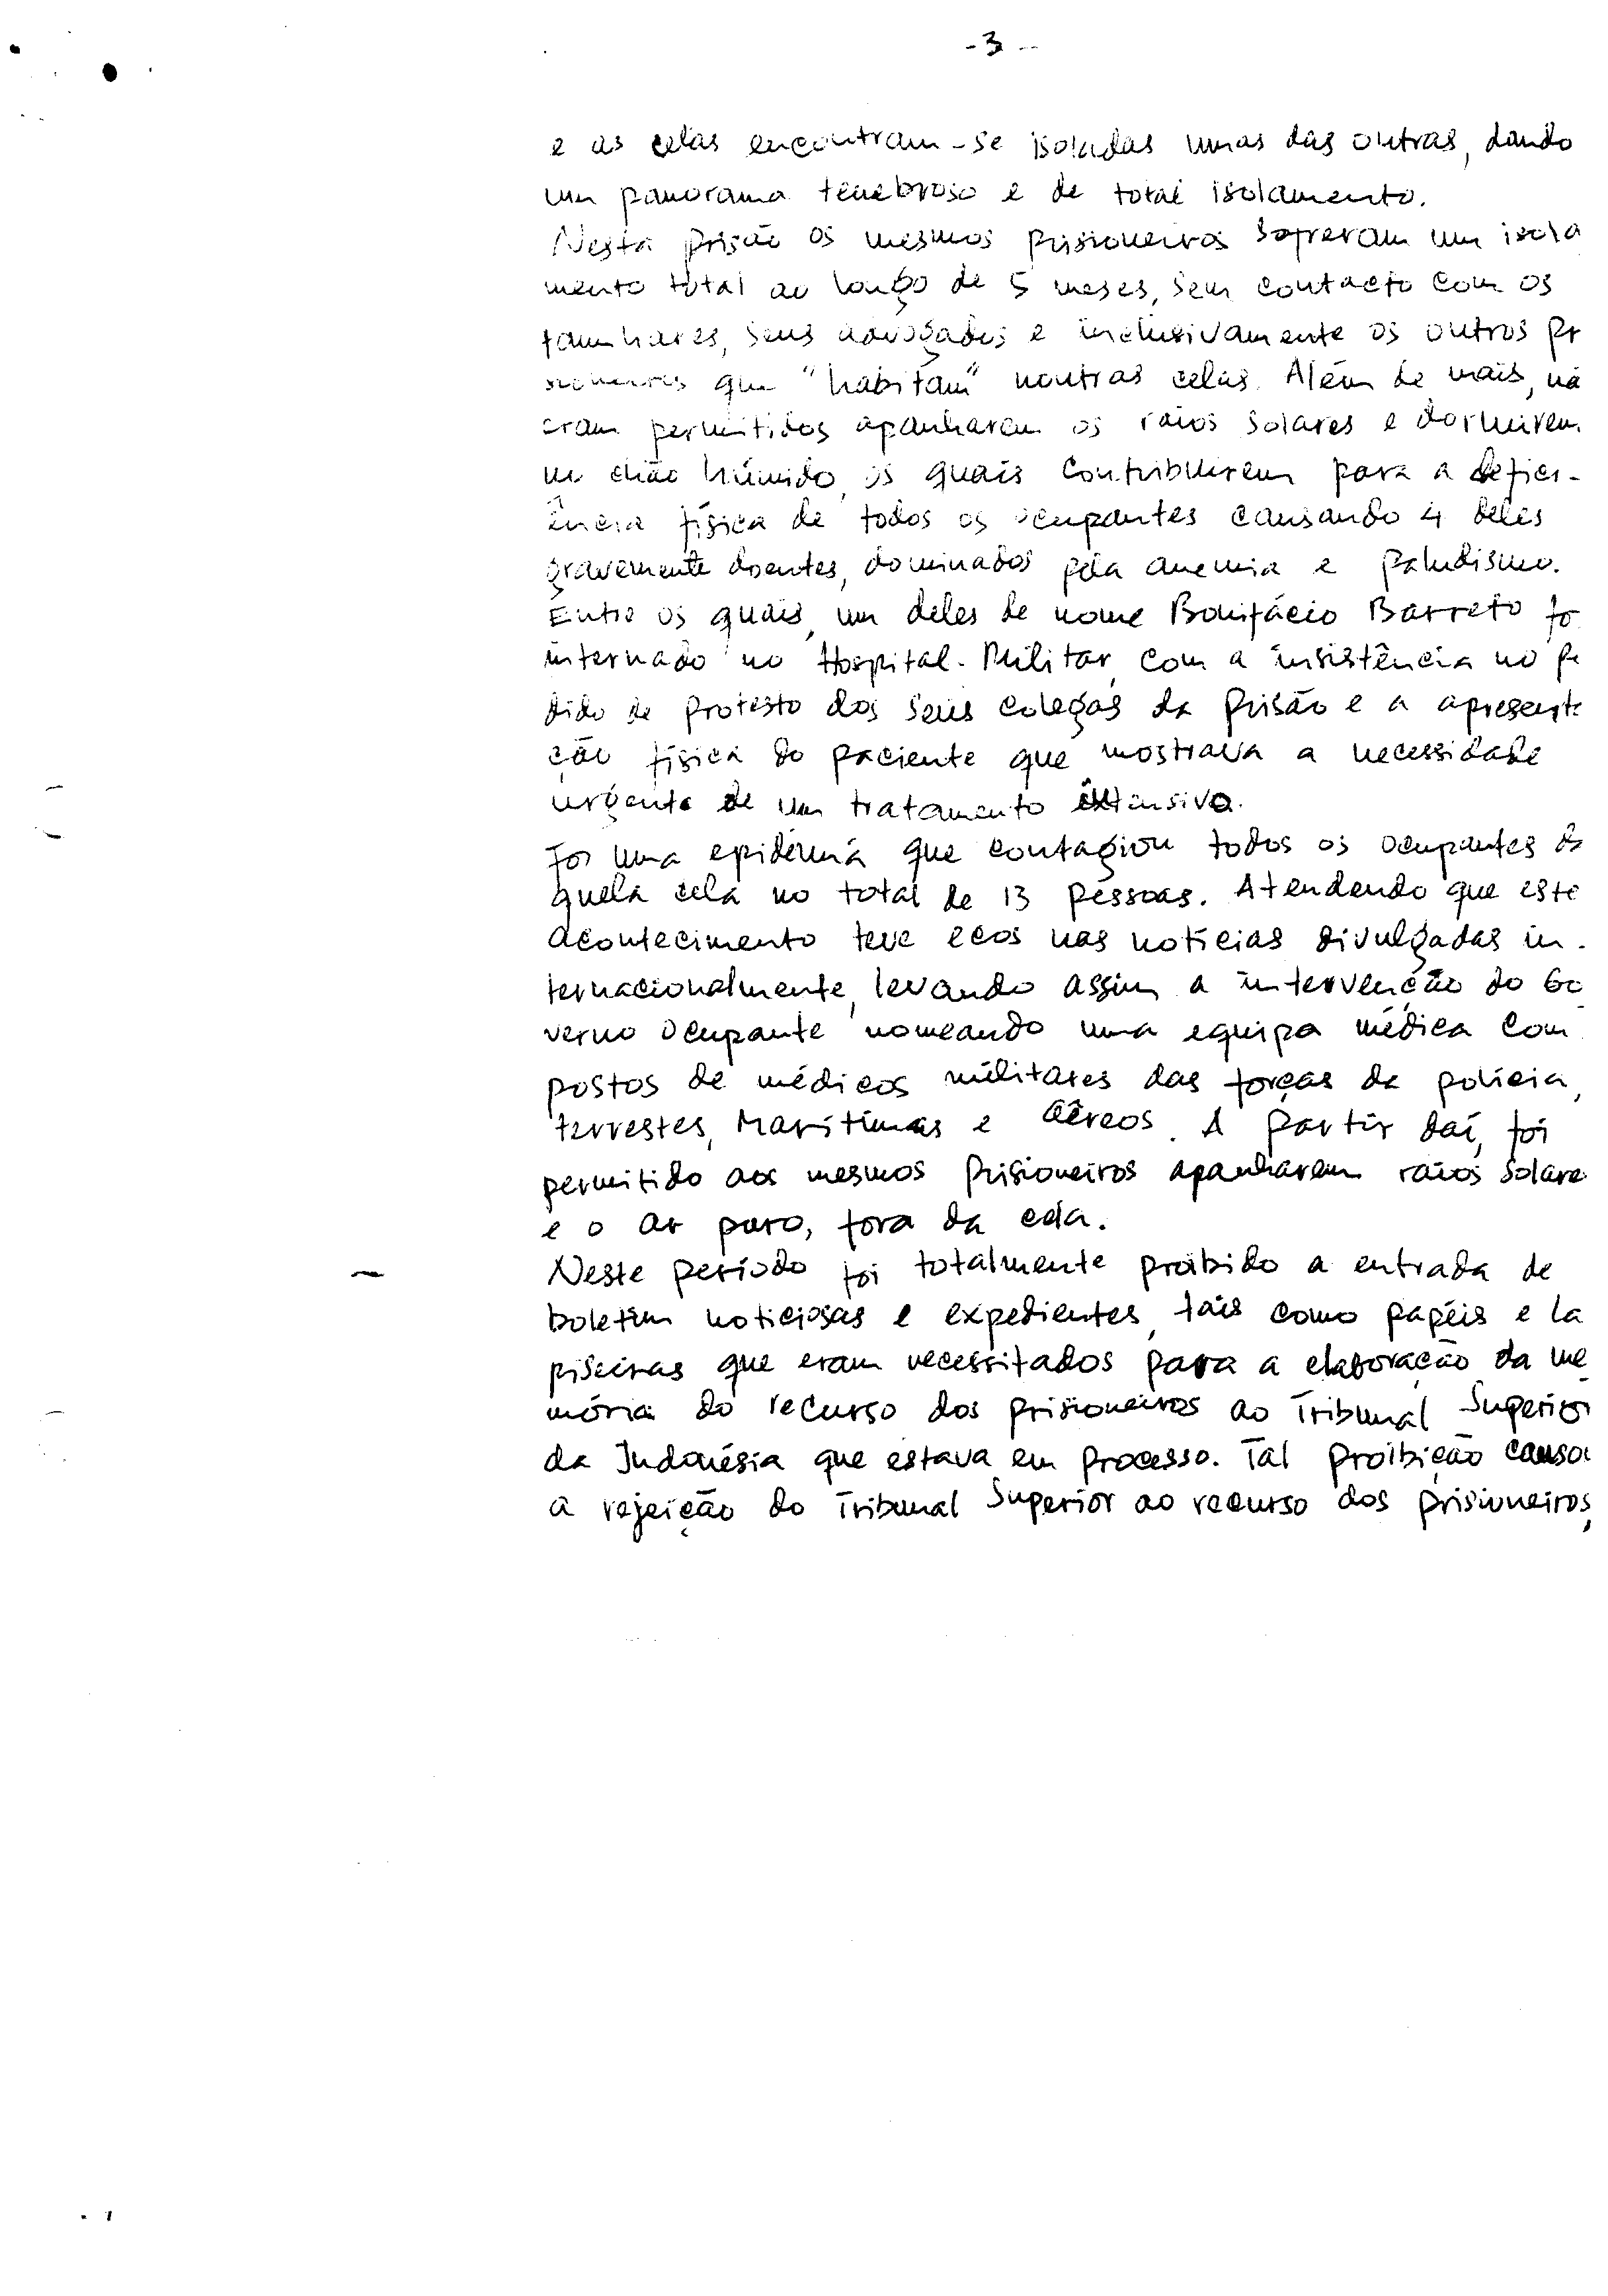 -3-
e as celas encontram-se isoladas umas das outras, dando
um panorama tenebroso e de total isolamento.
Nesta prisão os mesmos prisioneiros sofreram um isola
mento total ao longo de 5 meses, sem contacto com os
familiares, seus advogados e inclusivamente os outros pr
sioneiros que "habitam" noutras celas. Além de mais, nã
eram permitidos apanharem os raios solares e dormirem
no chão húmido, os quais contribuirem para a defici-
ência física de todos os ocupantes causando 4 deles
gravemente doentes, dominados pela anemia e paludismo.
Entre os quais, um deles de nome Bonifácio Barreto fo
internado no Hospital-Militar, com a insistência no pe
dido de protesto dos seus colegas da prisão e a apresenta
ção física do paciente que mostrava a necessidade
urgente de um tratamento intensivo.
Foi uma epidemia que contagiou todos os ocupantes da
quela cela no total de 13 pessoas. Atendendo que este
acontecimento teve ecos nas notícias divulgadas in-
ternacionalmente, levando assim a intervenção do Go
verno ocupante nomeando uma equipa médica com
postos de médicos militares das forças da polícia,
terrestes, Marítimas e aéreos. A partir daí, foi
permitido aos mesmos prisioneiros apanharem raios solare
e o ar puro, fora da cela.
Neste período foi totalmente proibido a entrada de
boletim noticiosas e expedientes, tais como papéis e la
piseiras que eram necessitados para a elaboração da me
mória do recurso dos prisioneiros ao Tribunal Superior
da Indonésia que estava em processo. Tal proibição causou
a rejeição do Tribunal Superior ao recurso dos prisioneiros,